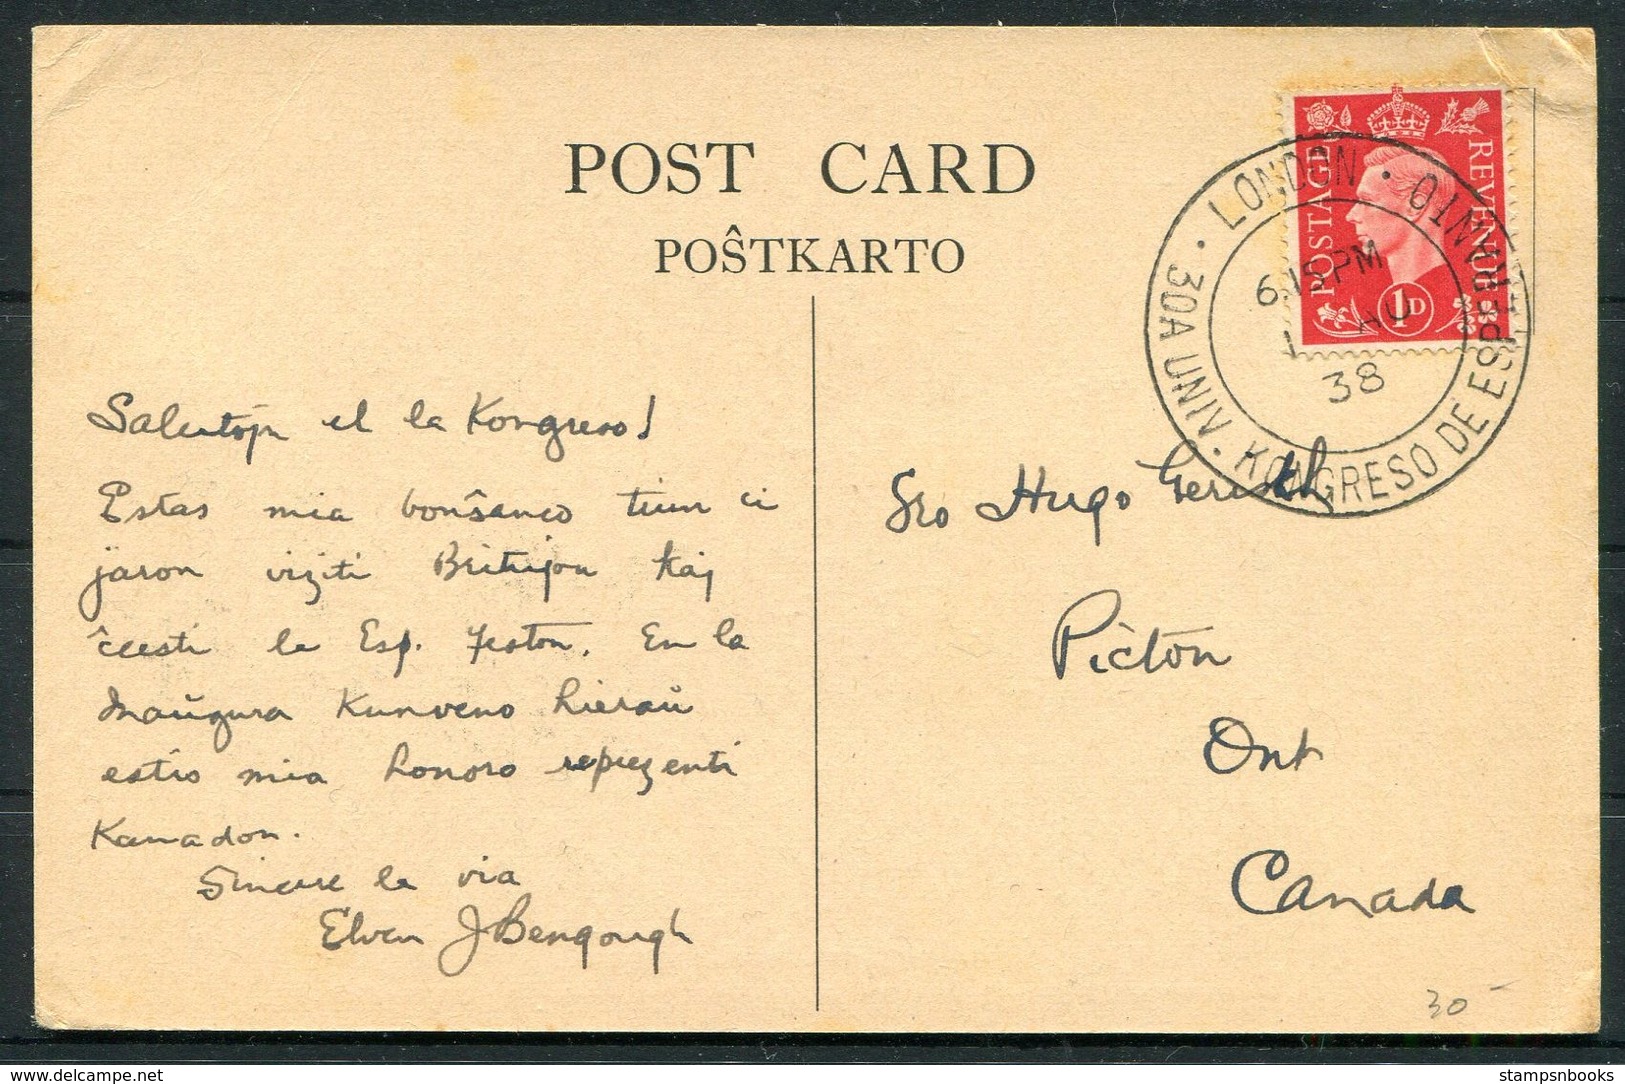 POST CARD
POŜTKARTO
POSTAGE REVENUE
1D
LONDON · 30A UNIV. KONGRESO DE ESPERANTO
6.15 PM
1 AU
38
Salutojn el la Kongreso!
Estas mia bonŝanco tiun ci
jaron viziti Britujon kaj
ĉeesti la Esp. feston. En la
Inaŭgura Kunveno hieraŭ
estis mia honoro reprezenti
Kanadon.
Sincere la via
Elven J Bengough
Sro Hugo
Picton
Ont
Canada
30-
delcampe.net
stampsnbooks